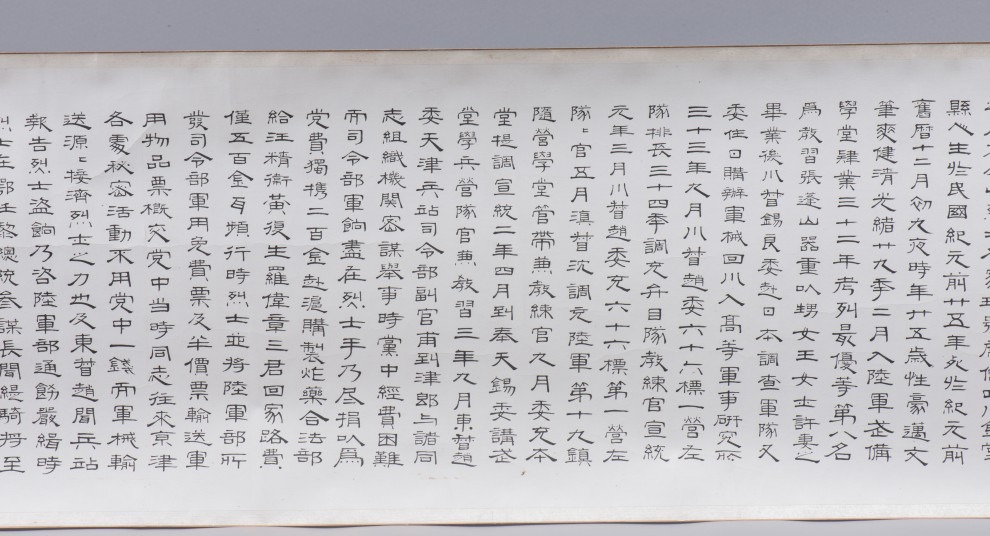 縣人生於民國紀元前廿五年死於紀元前
舊曆十二月初九夜時年廿五歲性豪邁文
筆爽健清光緒廿九季二月入陸軍武備
學堂肄業三十二年考列最優等第八名
為教習張逢山器重以甥女王女士許妻之
畢業後川督錫良委赴日本調查軍隊又
委住日購辦軍械回川入高等軍事研究所
三十三年九月川督趙委六十六標一營左
隊排長三十四季調充弁目隊教練官宣統
元年三月川督趙委充六十六標第一營左
隊隊官五月滇督沈調充陸軍第十九鎮
隨營學堂管帶兼教練官九月委充本
堂提調宣統二年四月到奉天錫委講武
堂學兵營隊官兼教習三年九月東督趙
委天津兵站司令部副官甫到津郎与諸同
志組織機關密謀舉事時黨中經費困難
而司令部軍餉盡在烈士手乃尽捐以為
党費獨携二百金赴滬購製炸藥合法部
給汪精衛黃復生羅偉章三君回家路費
僅五百金耳頻行時烈士並将陸軍部所
發司令部軍用免費票及半價票輸送軍
用物品票概交党中当時同志往來京津
各處秘密活動不用党中一錢而軍械輸
送源源接濟烈士之力也及東督趙聞兵站
報告烈士盜餉乃咨陸軍部通飭嚴緝時
烈士在鄂任黎總統參謀長聞緹騎将至